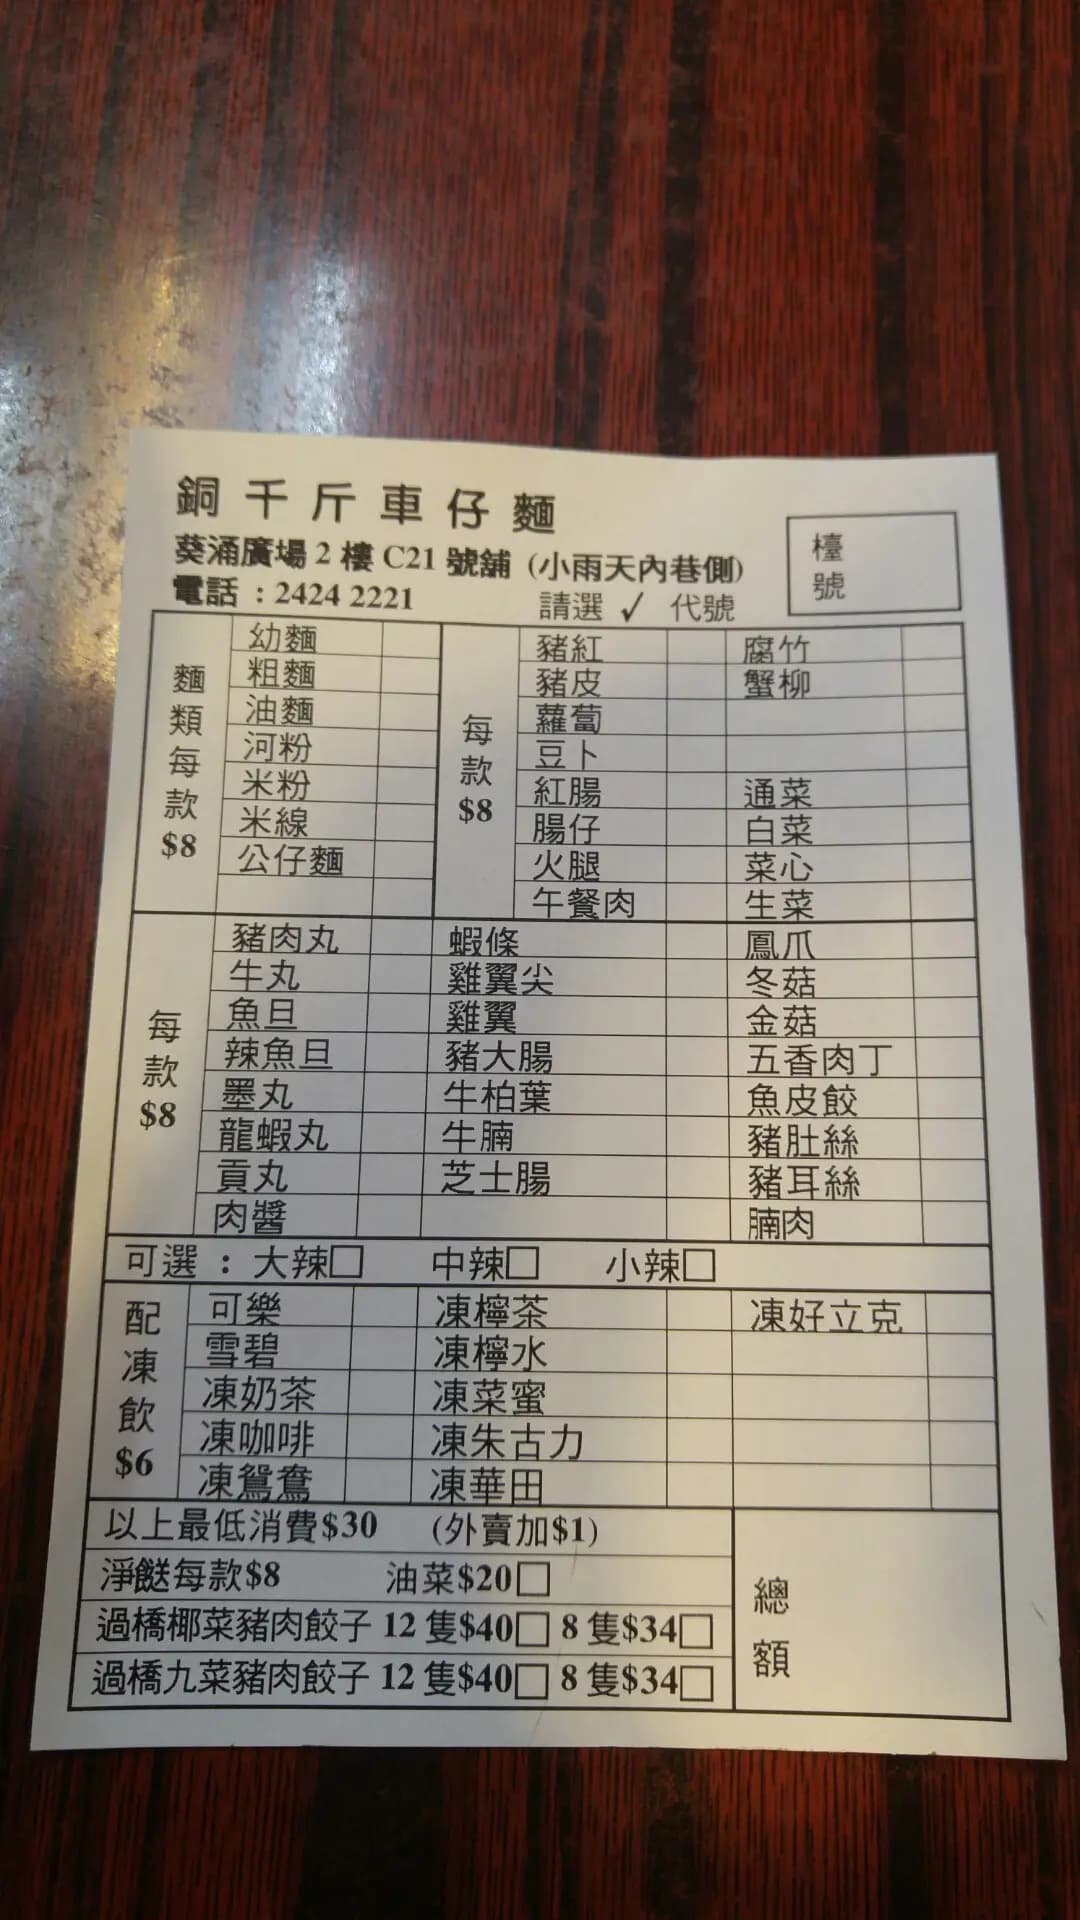 銅千斤車仔麵
葵涌廣場 2 樓 C21 號舖 (小雨天內巷側)
電話 : 2424 2221
請選 ✓ 代號
檯號
麵類每款$8
幼麵
粗麵
油麵
河粉
米粉
米線
公仔麵
每款$8
豬紅 腐竹
豬皮 蟹柳
蘿蔔
豆卜
紅腸 通菜
腸仔 白菜
火腿 菜心
午餐肉 生菜
每款$8
豬肉丸 蝦條 鳳爪
牛丸 雞翼尖 冬菇
魚旦 雞翼 金菇
辣魚旦 豬大腸 五香肉丁
墨丸 牛柏葉 魚皮餃
龍蝦丸 牛腩 豬肚絲
貢丸 芝士腸 豬耳絲
肉醬 腩肉
可選 : 大辣□ 中辣□ 小辣□
配凍飲$6
可樂 凍檸茶 凍好立克
雪碧 凍檸水
凍奶茶 凍菜蜜
凍咖啡 凍朱古力
凍鴛鴦 凍華田
以上最低消費$30 (外賣加$1)
淨餸每款$8 油菜$20□
過橋椰菜豬肉餃子 12 隻$40□ 8 隻$34□
過橋九菜豬肉餃子 12 隻$40□ 8 隻$34□
總額